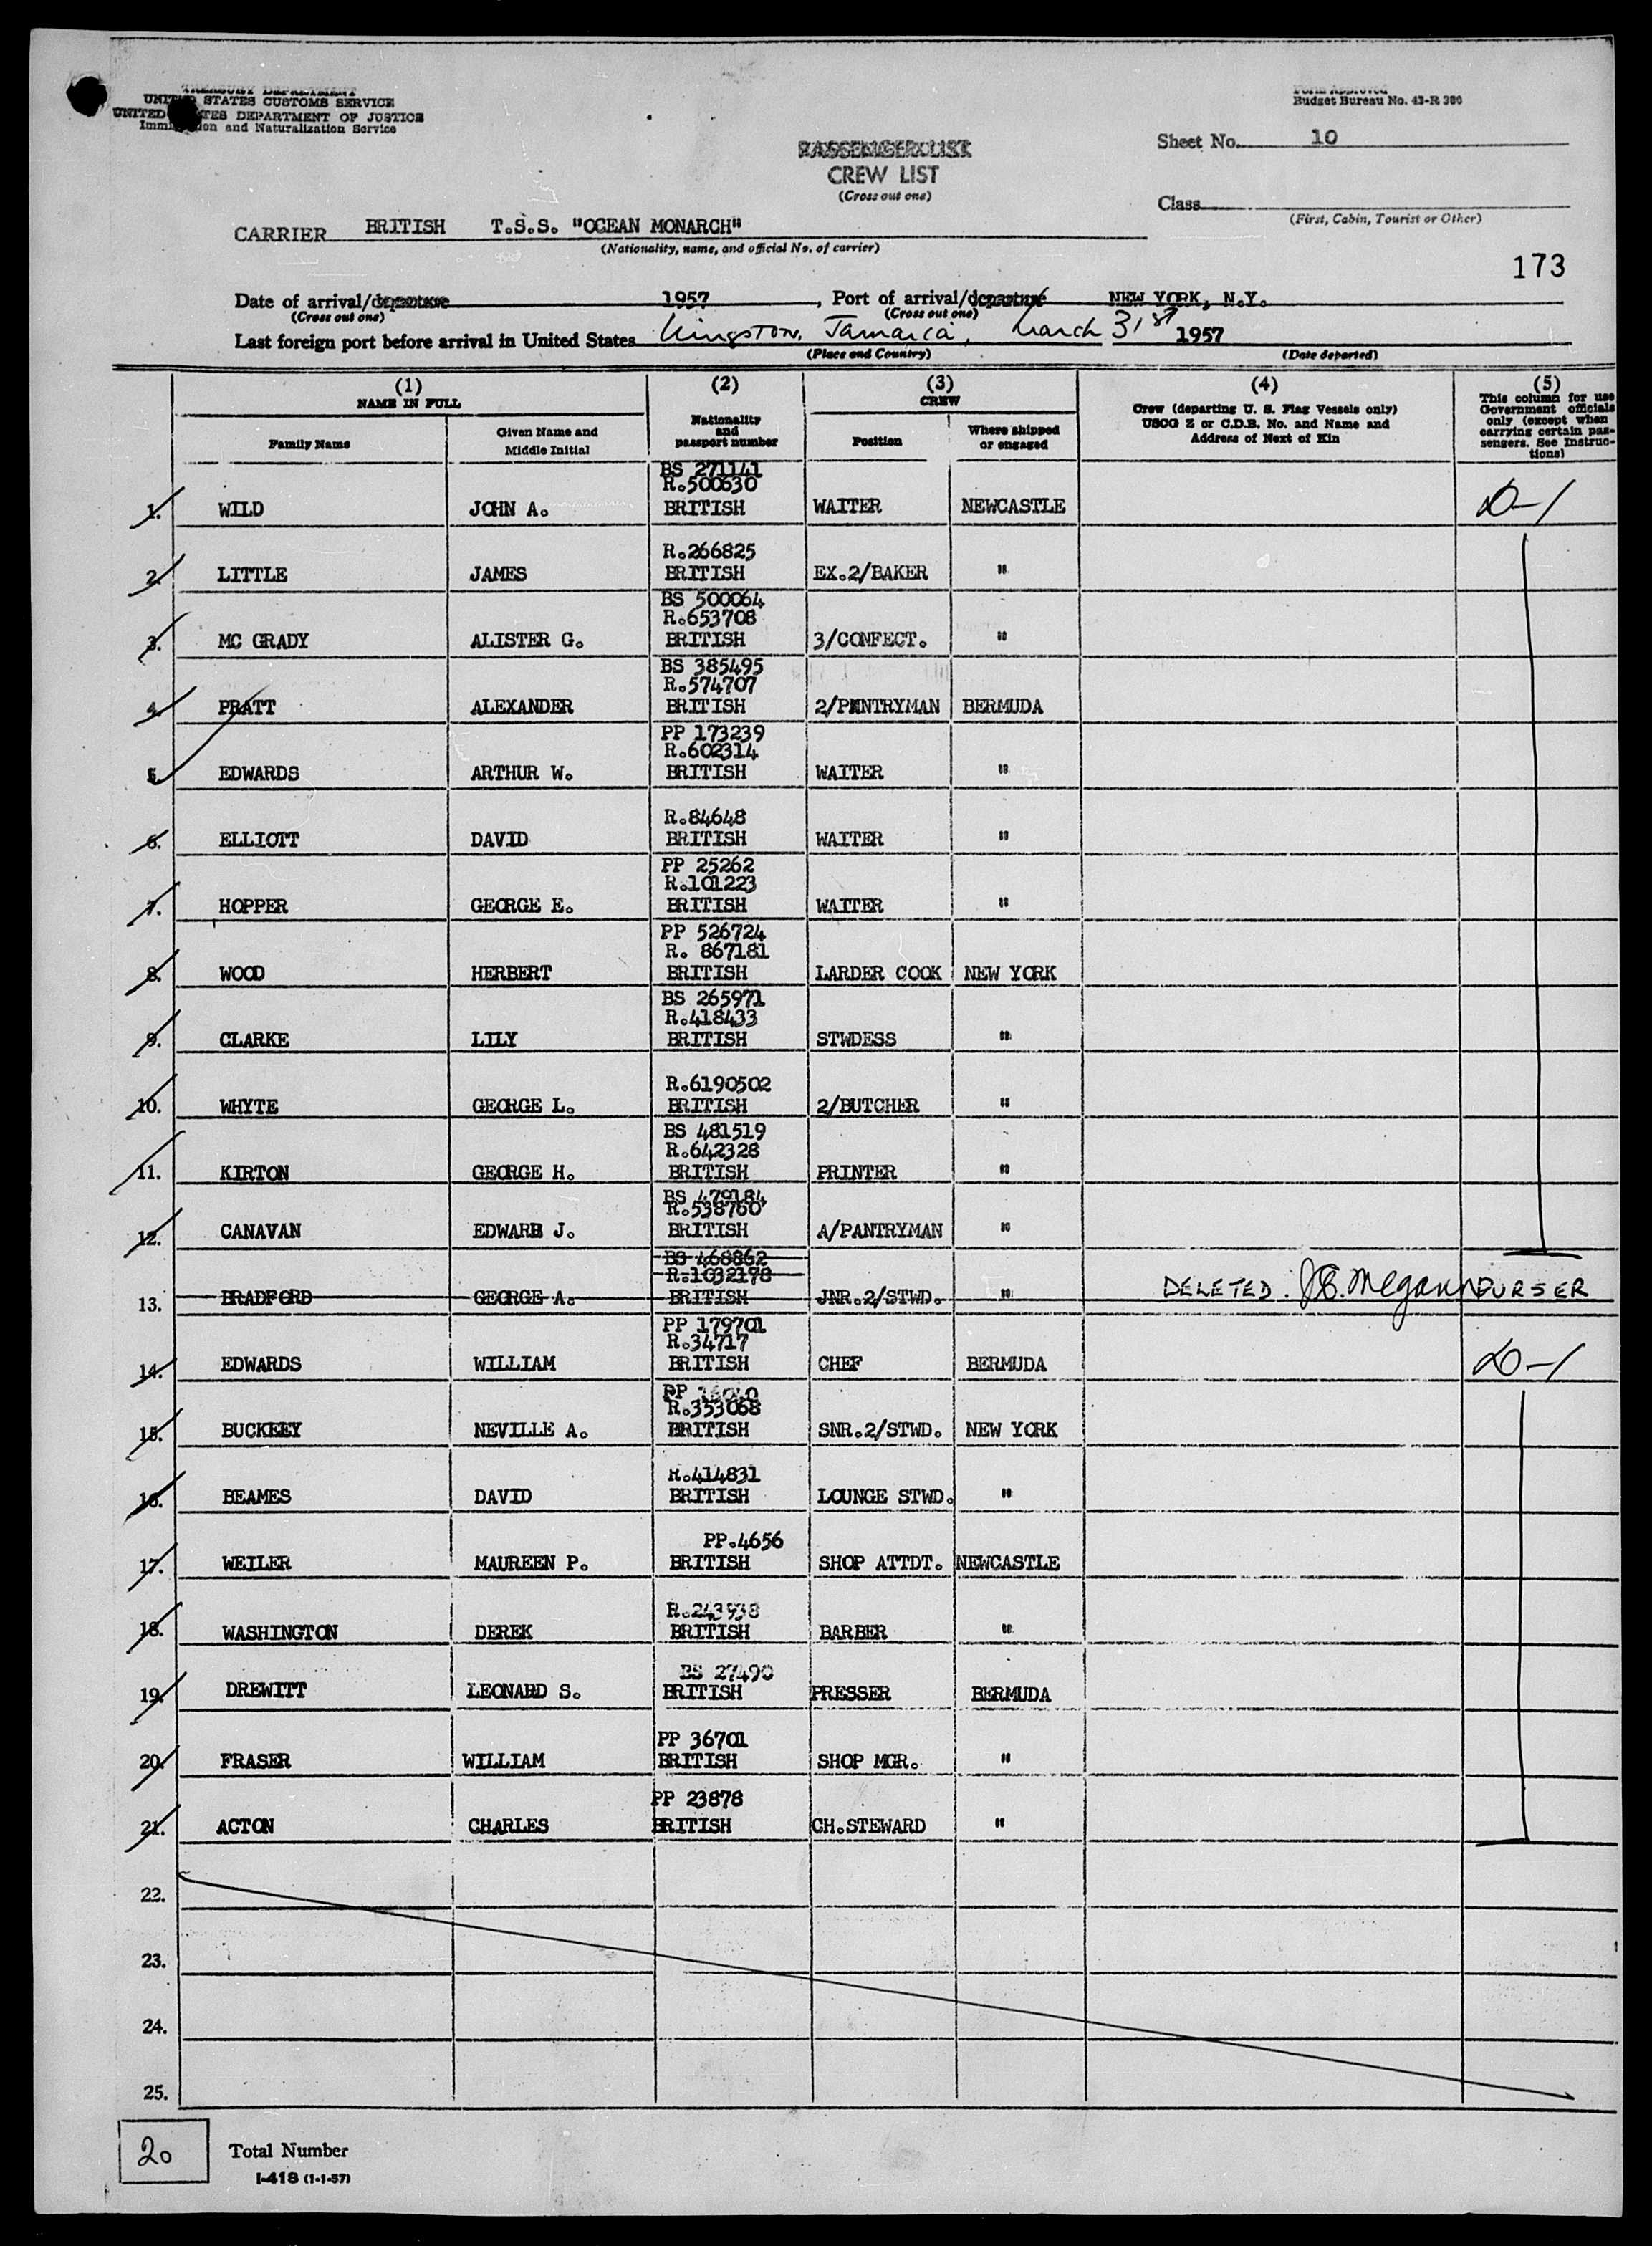 TREASURY DEPARTMENT
UNITED STATES CUSTOMS SERVICE
UNITED STATES DEPARTMENT OF JUSTICE
Immigration and Naturalization Service
Form Approved
Budget Bureau No. 43-R 380
Sheet No. 10
PASSENGER LIST
CREW LIST
(Cross out one)
Class
(First, Cabin, Tourist or Other)
CARRIER BRITISH T.S.S. "OCEAN MONARCH"
(Nationality, name, and official No. of carrier)
173
Date of arrival/departure 1957, Port of arrival/departure NEW YORK, N.Y.
(Cross out one) (Cross out one)
Last foreign port before arrival in United States Kingston, Jamaica, March 31st 1957
(Place and Country) (Date departed)
(1) (2) (3) (4) (5)
NAME IN FULL CREW
Family Name Given Name and Middle Initial Nationality and passport number Position Where shipped or engaged Crew (departing U. S. Flag Vessels only) USCG Z or C.D.B. No. and Name and Address of Next of Kin This column for use Government officials only (except when carrying certain passengers. See Instructions)
BS 271141
R.500630
1. WILD JOHN A. BRITISH WAITER NEWCASTLE D-1
R.266825
2. LITTLE JAMES BRITISH EX.2/BAKER "
BS 500064
R.653708
3. MC GRADY ALISTER G. BRITISH 3/CONFECT. "
BS 385495
R.574707
4. PRATT ALEXANDER BRITISH 2/PENTRYMAN BERMUDA
PP 173239
R.602314
5. EDWARDS ARTHUR W. BRITISH WAITER "
R.84648
6. ELLIOTT DAVID BRITISH WAITER "
PP 25262
R.101223
7. HOPPER GEORGE E. BRITISH WAITER "
PP 526724
R. 867181
8. WOOD HERBERT BRITISH LARDER COOK NEW YORK
BS 265971
R.418433
9. CLARKE LILY BRITISH STWDESS "
R.6190502
10. WHYTE GEORGE L. BRITISH 2/BUTCHER "
BS 481519
R.642328
11. KIRTON GEORGE H. BRITISH PRINTER "
BS 479184
R.538760
12. CANAVAN EDWARD J. BRITISH A/PANTRYMAN "
BS 468862
R.1032198
13. BRADFORD GEORGE A. BRITISH JNR.2/STWD. " DELETED. PURSER
PP 179701
R.34717
14. EDWARDS WILLIAM BRITISH CHEF BERMUDA D-1
PP
R.353068
15. BUCKLEY NEVILLE A. BRITISH SNR.2/STWD. NEW YORK
R.414831
16. BEAMES DAVID BRITISH LOUNGE STWD. "
PP.4656
17. WEILER MAUREEN P. BRITISH SHOP ATTDT. NEWCASTLE
R.243938
18. WASHINGTON DEREK BRITISH BARBER "
BS 27490
19. DREWITT LEONARD S. BRITISH PRESSER BERMUDA
PP 36701
20. FRASER WILLIAM BRITISH SHOP MGR. "
PP 23878
21. ACTON CHARLES BRITISH CH.STEWARD "
22.
23.
24.
25.
20 Total Number
I-418 (1-1-57)